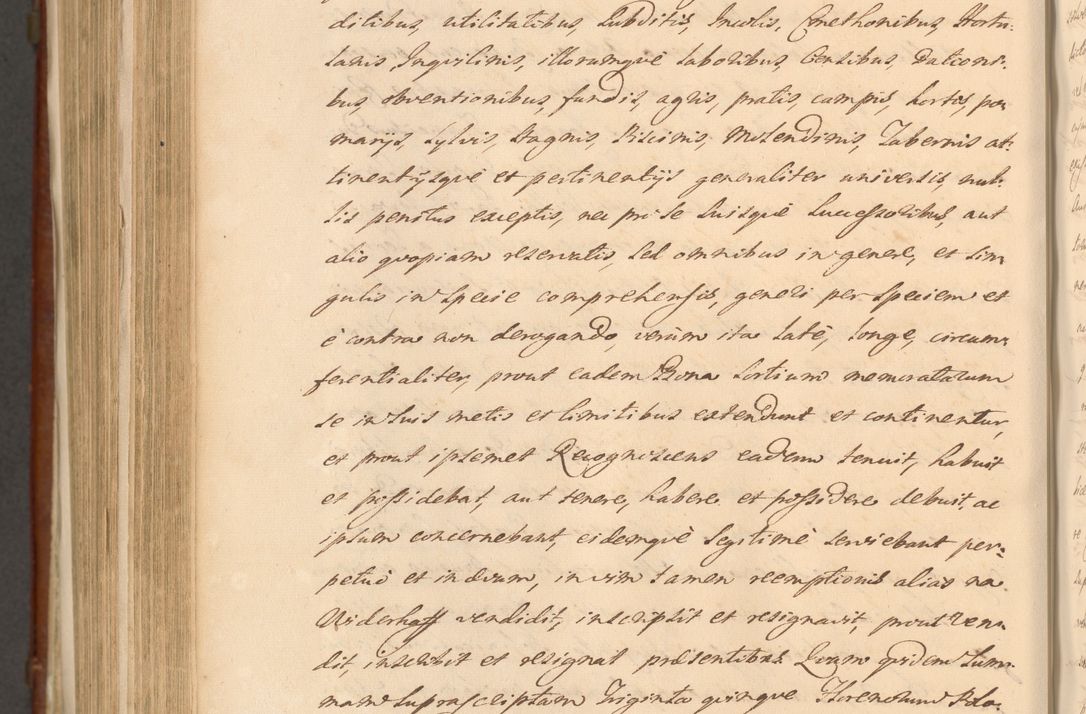 ditibus, utilitatibus, Subditis, Incolis, Cmethonibus, Hortu:
lanis, Inqvilinis, illorumqvè laboribus, Censibus, Dationi:
bus obventionibus, fundis, agris, pratis, campis, hortis, po
marijs, Sylvis, Stagnis, Piscinis, Molendinis, Tabernis at:
tinentijsqvè et pertinentijs generaliter universis, nul:
lis penitus exceptis, nec pro se Suisqvè Successoribus, aut
alio qvopiam reservatis, Sed omnibus in genere, et Sin
gulis in Specie comprehensis, generi per Speciem et
è contra non derogando, verùm ita latè, longè, circum
ferentialiter, prout eadem Bona Sortium memoratarum
se in Suis metis et limitibus extendunt et continentur,
et prout ipsemet Recognoscens eadem tenuit, habuit
et possidebat, aut tenere, habere et possidere debuit, ac
ipsum concernebant, eidemqvè legitimè serviebant per:
petuò et in ævum, in vim tamen reemptionis alias na
Widerhaff vendidit, inscripsit et resignavit, prout ven
dit, inscribit et resignat præsentibus. Qvam qvidem Sum
mam Suprascriptam Triginta qvinqve Florenorum Polo: